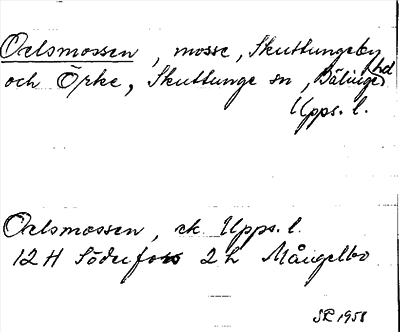 Oxelsmossen, mosse, Skuttungeby
och Örke, Skuttunge sn, Bälinge hd
Upps. l.
Oxelsmossen, ek Upps. l.
12 H Söderfors 2 h Mångelbo
1958